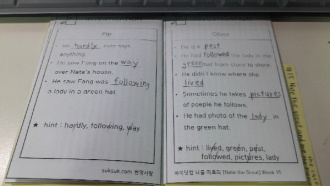 He hardly ever says
anything.
He saw Fang on the way
over Nate's house.
He saw Fang was following
a lady in a green hat.
★ hint : hardly, following, way
He is a pest
He had followed the lady in the
green hat from store to store
He didn't know where she
lived
Sometimes he takes pictures
of poeple he follows.
He had photo of the lady in
the green hat.
★ hint : lived, green, pest,
followed, pictures, lady